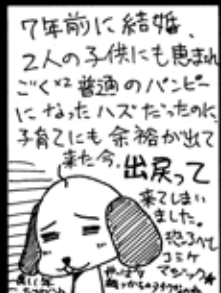 7年前に結婚、
2人の子供にも恵まれ
ごく×2 普通のパンピー
になったハズだったのに、
子育てにも余裕が出て
来た今、出戻って
来てしまい
ました。
恐るべし
コミケ
マジック